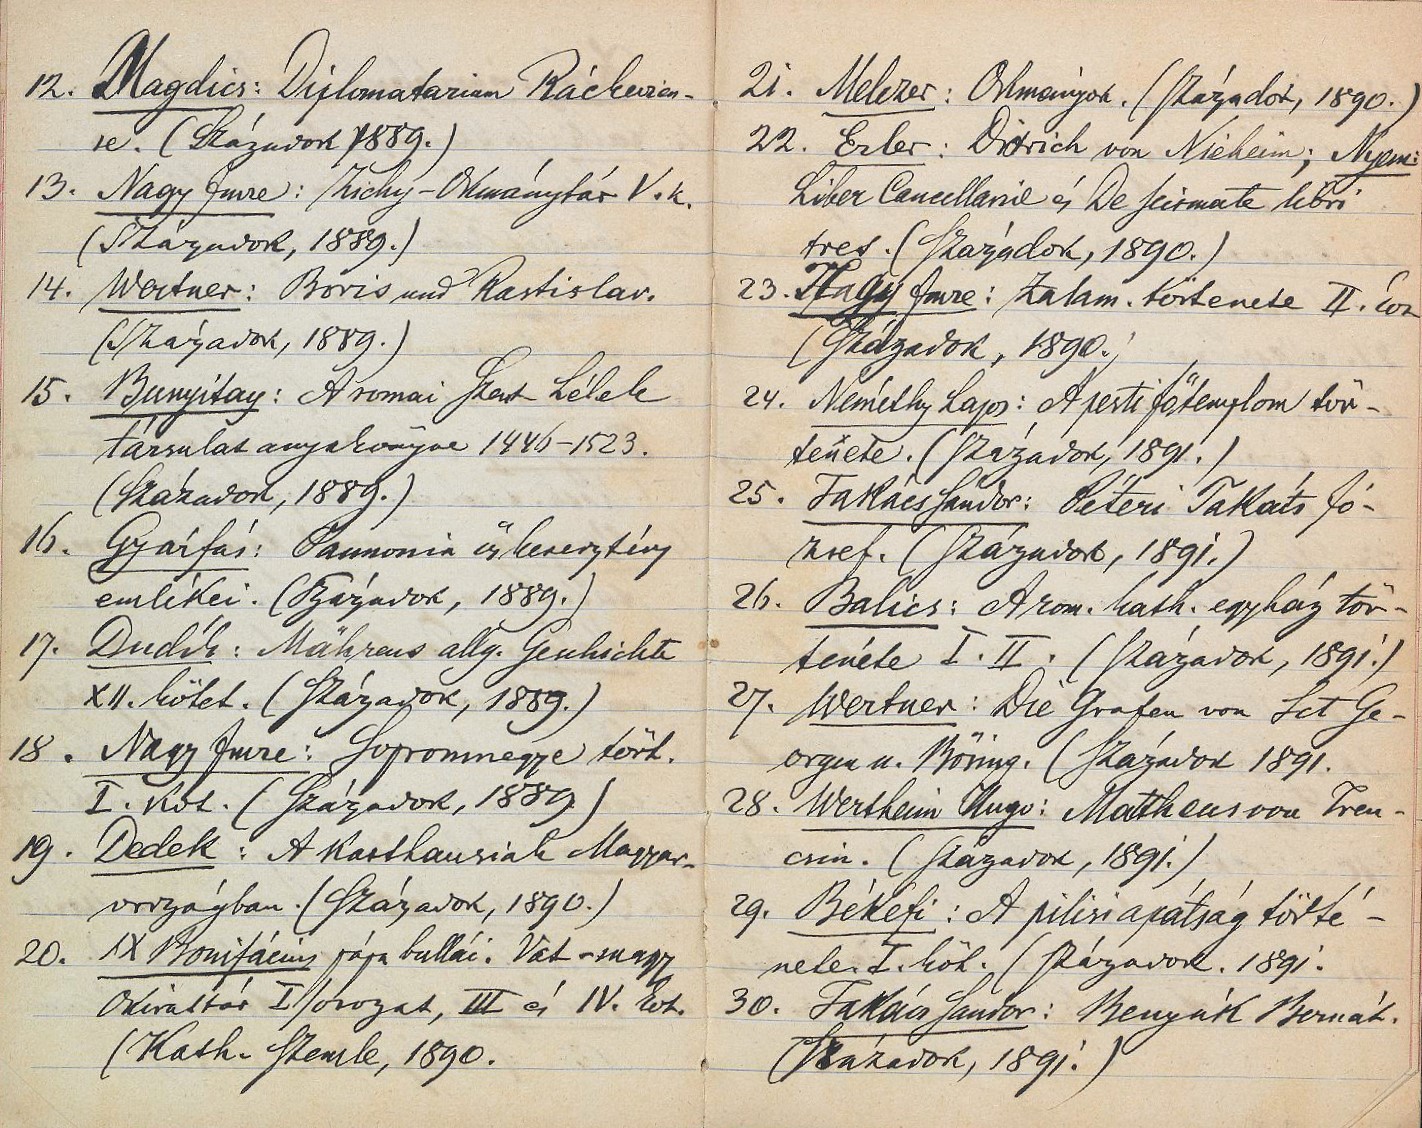 12. Magdics: Diplomatarium Ráckevien-
se. (Századok 1889.)
13. Nagy Imre: Zichy-Okmánytár V. k.
(Századok, 1889.)
14. Wertner: Boris und Rastislav.
(Századok, 1889.)
15. Bunyitay: A romai Szent Lélek
társulat anyakönyve 1446-1523.
(Századok, 1889.)
16. Gyárfás: Pannonia őskeresztény
emlékei. (Századok, 1889.)
17. Dudík: Mährens allg. Geschichte
XII. kötet. (Századok, 1889.)
18. Nagy Imre: Sopronmegye tört.
I. köt. (Századok, 1889)
19. Dedek: A karthausiak Magyar-
országban. (Századok, 1890.)
20. IX Bonifácius pápa bullái. Vat-magy
Okirattár I sorozat, III és IV. köt.
(Kath. Szemle, 1890.
21. Melczer: Okmányok. (Századok, 1890.)
22. Erler: Ditrich von Nieheim; Nyem:
Liber Cancellarie és De scismate libri
tres. (Századok, 1890.)
23. Nagy Imre: Zalam. története II. köt
(Századok, 1890.)
24. Némethy Lajos: A pesti főtemplom tör-
tenete. (Századok, 1891.)
25. Takács Sandor: Péteri Takáts Jó-
zsef. (Századok, 1891.)
26. Balics: A rom. kath. egyház tör-
tenéte I. II. (Századok, 1891.)
27. Wertner: Die Grafen von Sct Ge-
orgen u. Bösing. (Századok 1891.
28. Wertheim Hugo: Mattheus von Tren-
csin. (Századok, 1891.)
29. Békefi: A pilisi apátság törté-
nete. I. köt. (Századok. 1891.
30. Takács Sandor: Benyák Bernát.
(Századok, 1891.)